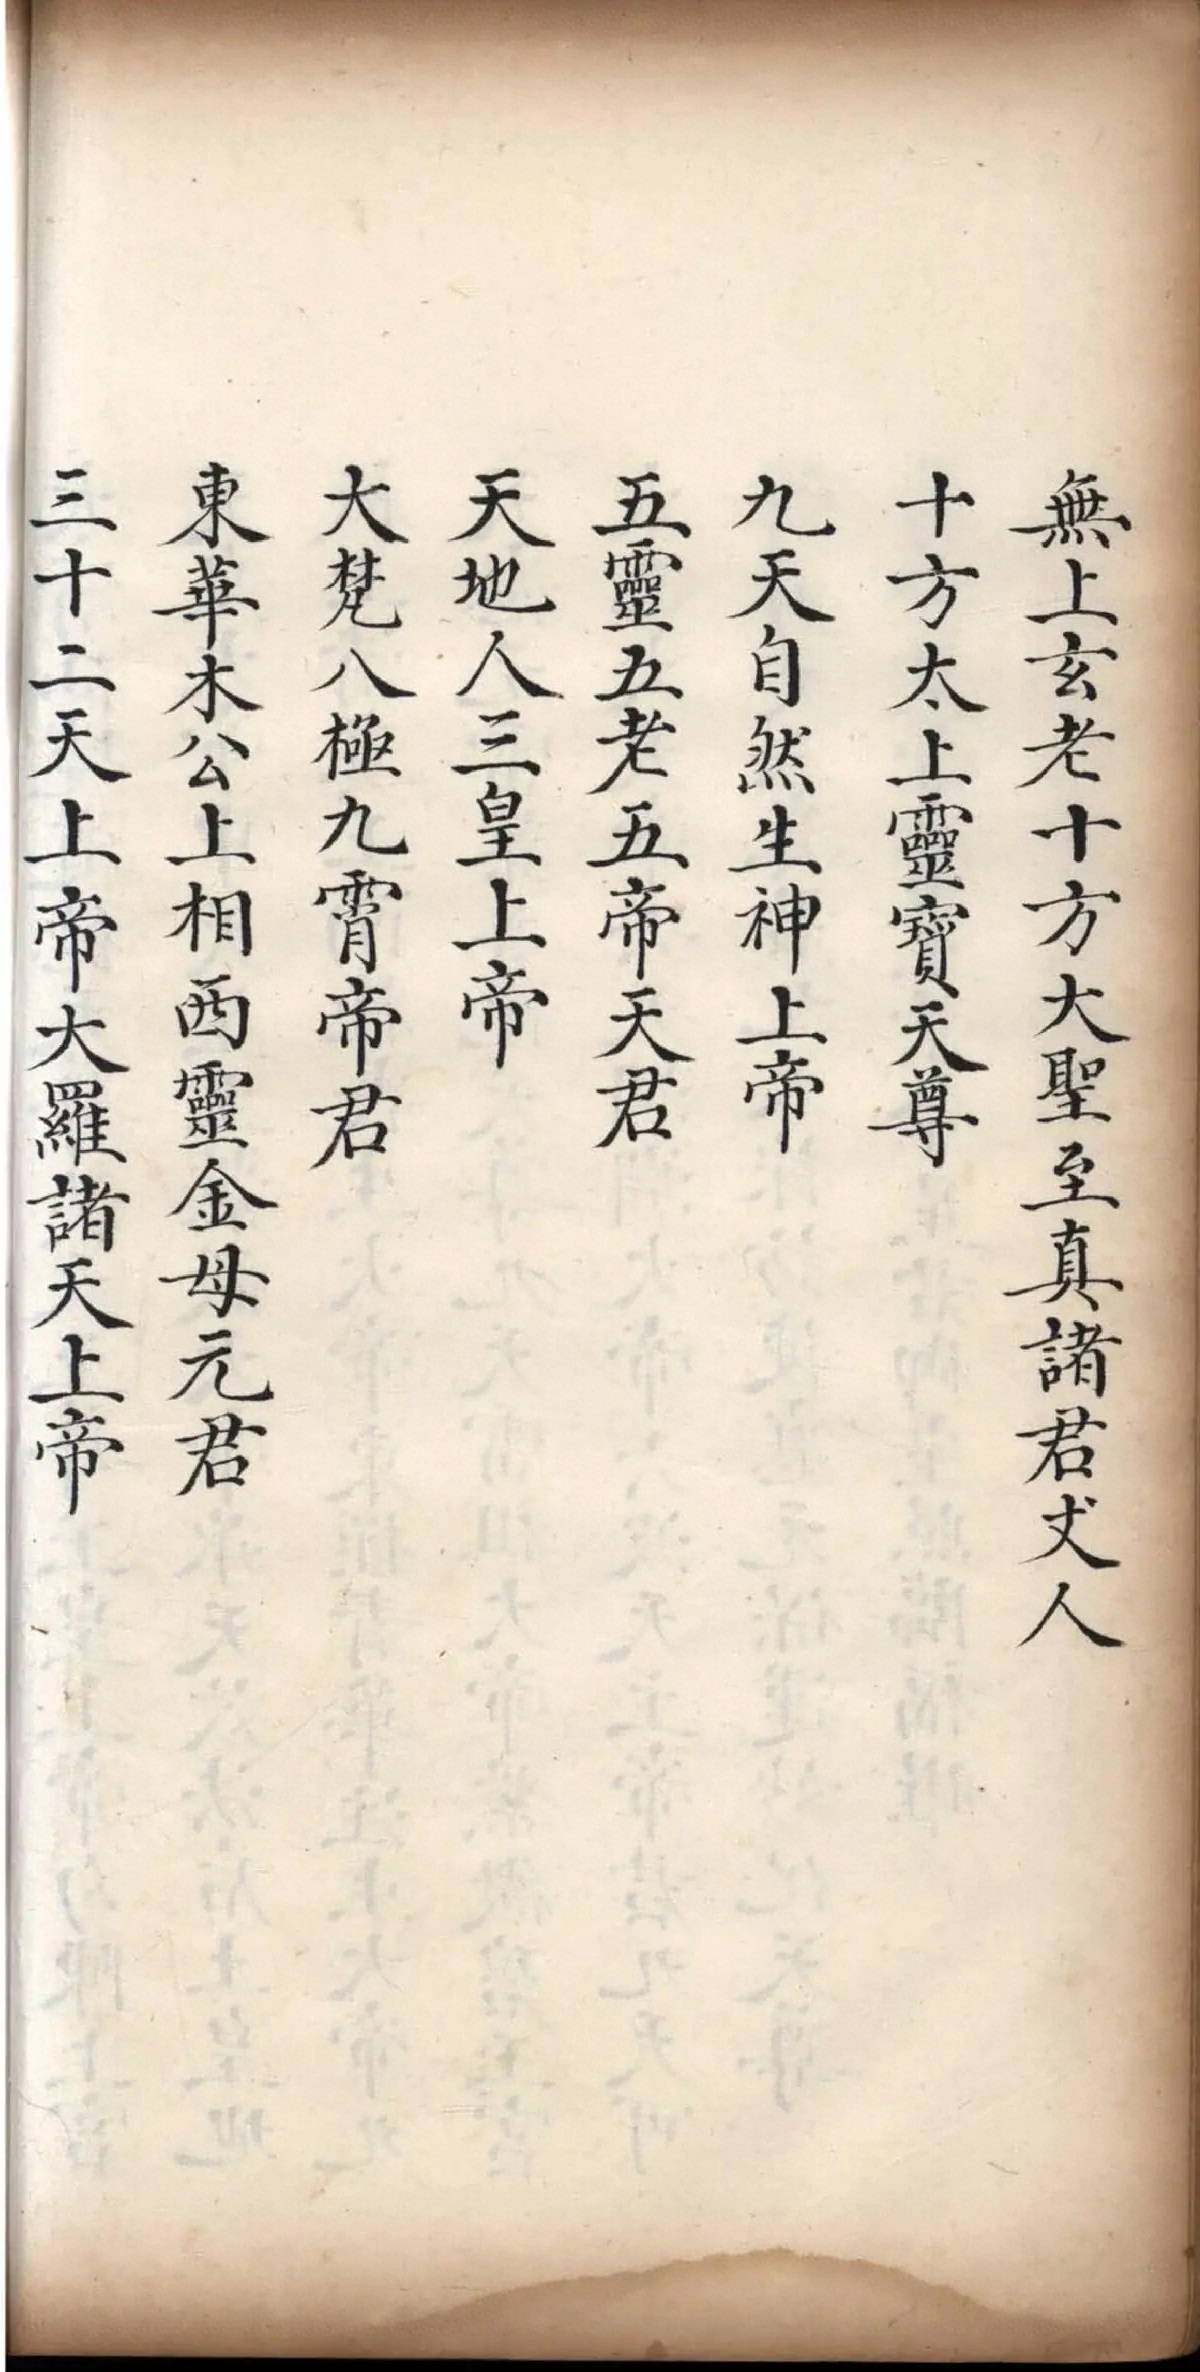 無上玄老十方大聖至真諸君丈人
十方太上靈寶天尊
九天自然生神上帝
五靈五老五帝天君
天地人三皇上帝
大梵八極九霄帝君
東華木公上相西靈金母元君
三十二天上帝大羅諸天上帝